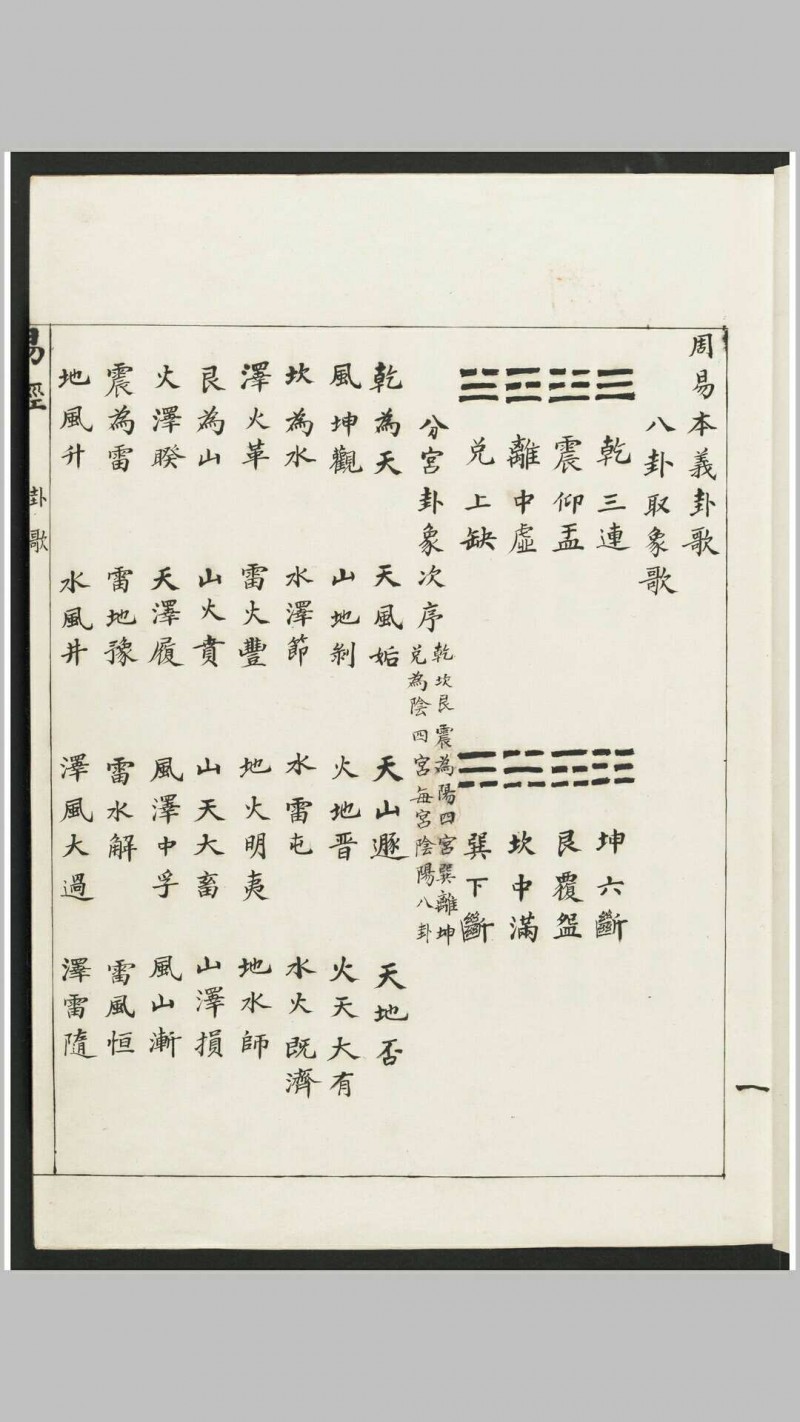 周易本義卦歌
八卦取象歌
乾三連 坤六斷
震仰盂 艮覆盌
離中虛 坎中滿
兌上缺 巽下斷
分宮卦象次序
乾坎艮震為陽四宮巽離坤
兌為陰四宮每宮陰陽八卦
乾為天 天風姤 天山遯 天地否
風坤觀 山地剝 火地晋 火天大有
坎為水 水澤節 水雷屯 水火既濟
澤火革 雷火豐 地火明夷 地水師
艮為山 山火賁 山天大畜 山澤損
火澤睽 天澤履 風澤中孚 風山漸
震為雷 雷地豫 雷水解 雷風恒
地風升 水風井 澤風大過 澤雷隨
易經 卦歌
一